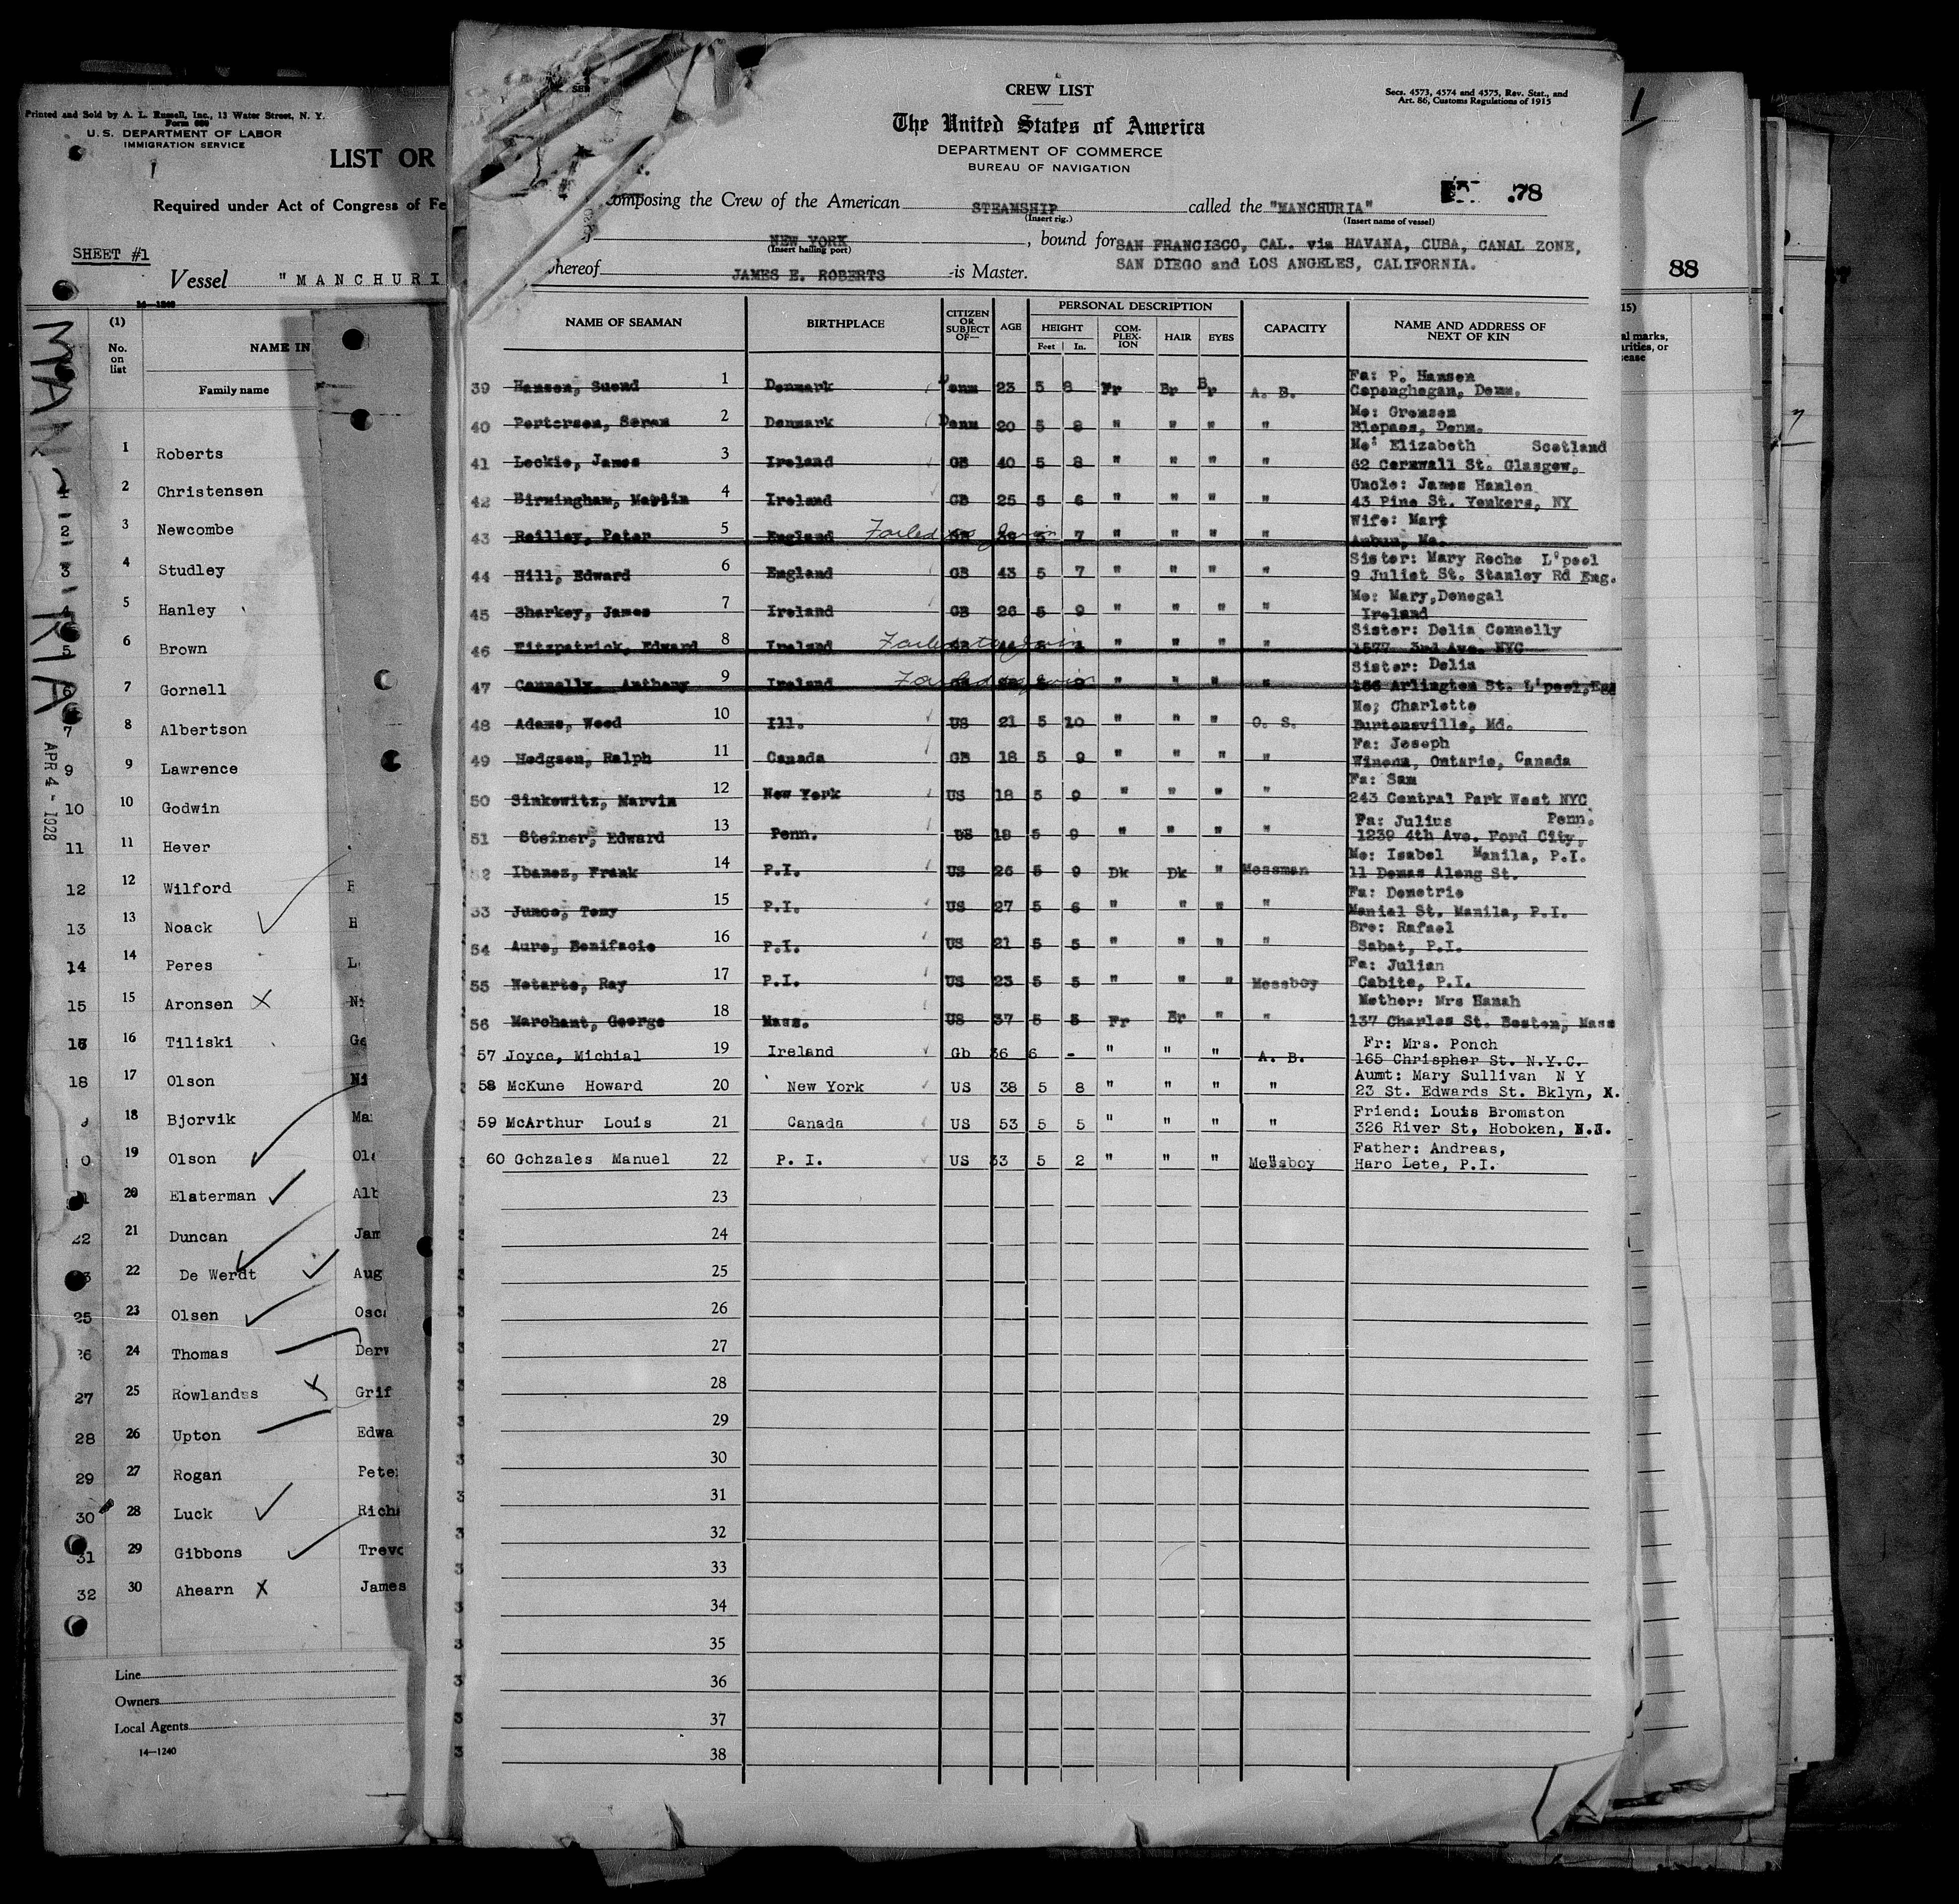 Printed and Sold by A. L. Russell, Inc., 13 Water Street, N. Y.
Form 680
U. S. DEPARTMENT OF LABOR
IMMIGRATION SERVICE
LIST OR
Required under Act of Congress of Fe
SHEET #1
Vessel "MANCHURI
14—1240
MAN RIA
APR 4 - 1928
(1)
No. on list
NAME IN
Family name
1 Roberts
1 2 Christensen
2 3 Newcombe
3 4 Studley
4 5 Hanley
5 6 Brown
6 7 Gornell
7 8 Albertson
9 9 Lawrence
10 10 Godwin
11 11 Hever
12 12 Wilford
13 13 Noack H
14 14 Peres L
15 15 Aronsen X Ni
16 16 Tiliski Ge
18 17 Olson Ni
18 Bjorvik Ma
0 19 Olson Ol
20 Elsterman Alb
22 21 Duncan Jam
22 De Werdt Aug
25 23 Olsen Osc
26 24 Thomas Derw
27 25 Rowlandss X Grif
28 26 Upton Edwa
29 27 Rogan Pete
30 28 Luck Rich
31 29 Gibbons Trevo
32 30 Ahearn X James
Line
Owners
Local Agents
14—1240
CREW LIST
Secs. 4573, 4574 and 4575, Rev. Stat., and
Art. 86, Customs Regulations of 1915
The United States of America
DEPARTMENT OF COMMERCE
BUREAU OF NAVIGATION
78
omposing the Crew of the American STEAMSHIP called the "MANCHURIA"
(Insert rig.) (Insert name of vessel)
NEW YORK, bound for SAN FRANCISCO, CAL. via HAVANA, CUBA, CANAL ZONE,
(Insert hailing port)
SAN DIEGO and LOS ANGELES, CALIFORNIA.
whereof JAMES E. ROBERTS is Master.
88
NAME OF SEAMAN BIRTHPLACE CITIZEN OR SUBJECT OF— AGE PERSONAL DESCRIPTION CAPACITY NAME AND ADDRESS OF NEXT OF KIN
HEIGHT COM-PLEX-ION HAIR EYES
Feet In.
39 Hansen, Suend 1 Denmark Denm 23 5 8 Fr Br Br A. B. Fa: P. Hansen
Copenghegan, Denm.
40 Pertersen, Soren 2 Denmark Denm 20 5 8 " " " " Mo: Gromsen
Blopaes, Denm.
41 Leckie, James 3 Ireland GB 40 5 8 " " " " Mo: Elizabeth Scotland
62 Cornwall St. Glasgow,
42 Birmingham, Martin 4 Ireland GB 25 5 6 " " " " Uncle: James Hanlen
43 Pine St. Yonkers, NY
43 Reilley, Peter 5 England Failed to join 5 7 " " " " Wife: Mary
44 Hill, Edward 6 England GB 43 5 7 " " " " Sister: Mary Roche L'pool
9 Juliet St. Stanley Rd Eng.
45 Sharkey, James 7 Ireland GB 26 5 9 " " " " Mo: Mary, Donegal
Ireland
46 Fitzpatrick, Edward 8 Ireland Failed to join " " " " Sister: Delia Connelly
1577 3rd Ave. NYC
47 Connelly, Anthony 9 Ireland Failed to join " " " " Sister: Delia
156 Arlington St. L'pool, Eng
48 Adams, Wood 10 Ill. US 21 5 10 " " " O. S. Mo; Charlotte
Burtonsville, Md.
49 Hodgson, Ralph 11 Canada GB 18 5 9 " " " " Fa: Joseph
Winona, Ontario, Canada
50 Sinkowitz, Marvin 12 New York US 18 5 9 " " " " Fa: Sam
243 Central Park West NYC
51 Steiner, Edward 13 Penn. US 18 5 9 " " " " Fa: Julius Penn.
1239 4th Ave. Ford City,
52 Ibanez, Frank 14 P.I. US 26 5 9 Dk Dk " Messman Mo: Isabel Manila, P.I.
11 Demas Alang St.
53 Junco, Tony 15 P.I. US 27 5 6 " " " " Fa: Demetrio
Manial St. Manila, P.I.
54 Aure, Bonifacio 16 P.I. US 21 5 5 " " " " Bro: Rafael
Sabat, P.I.
55 Notarte, Ray 17 P.I. US 23 5 5 " " " Messboy Fa: Julian
Cabite, P.I.
56 Marchant, George 18 Mass. US 37 5 5 Fr Br " " Mother: Mrs Hanah
137 Charles St. Boston, Mass
57 Joyce, Michial 19 Ireland Gb 36 6 - " " " A. B. Fr: Mrs. Ponch
165 Chrispher St. N.Y.C.
58 McKune Howard 20 New York US 38 5 8 " " " " Aumt: Mary Sullivan N Y
23 St. Edwards St. Bklyn, N.
59 McArthur Louis 21 Canada US 53 5 5 " " " " Friend: Louis Bromston
326 River St, Hoboken, N.J.
60 Gohzales Manuel 22 P. I. US 33 5 2 " " " Messboy Father: Andreas,
Haro Lete, P.I.
23
24
25
26
27
28
29
30
31
32
33
34
35
36
37
38
15)
al marks,
arities, or
ease